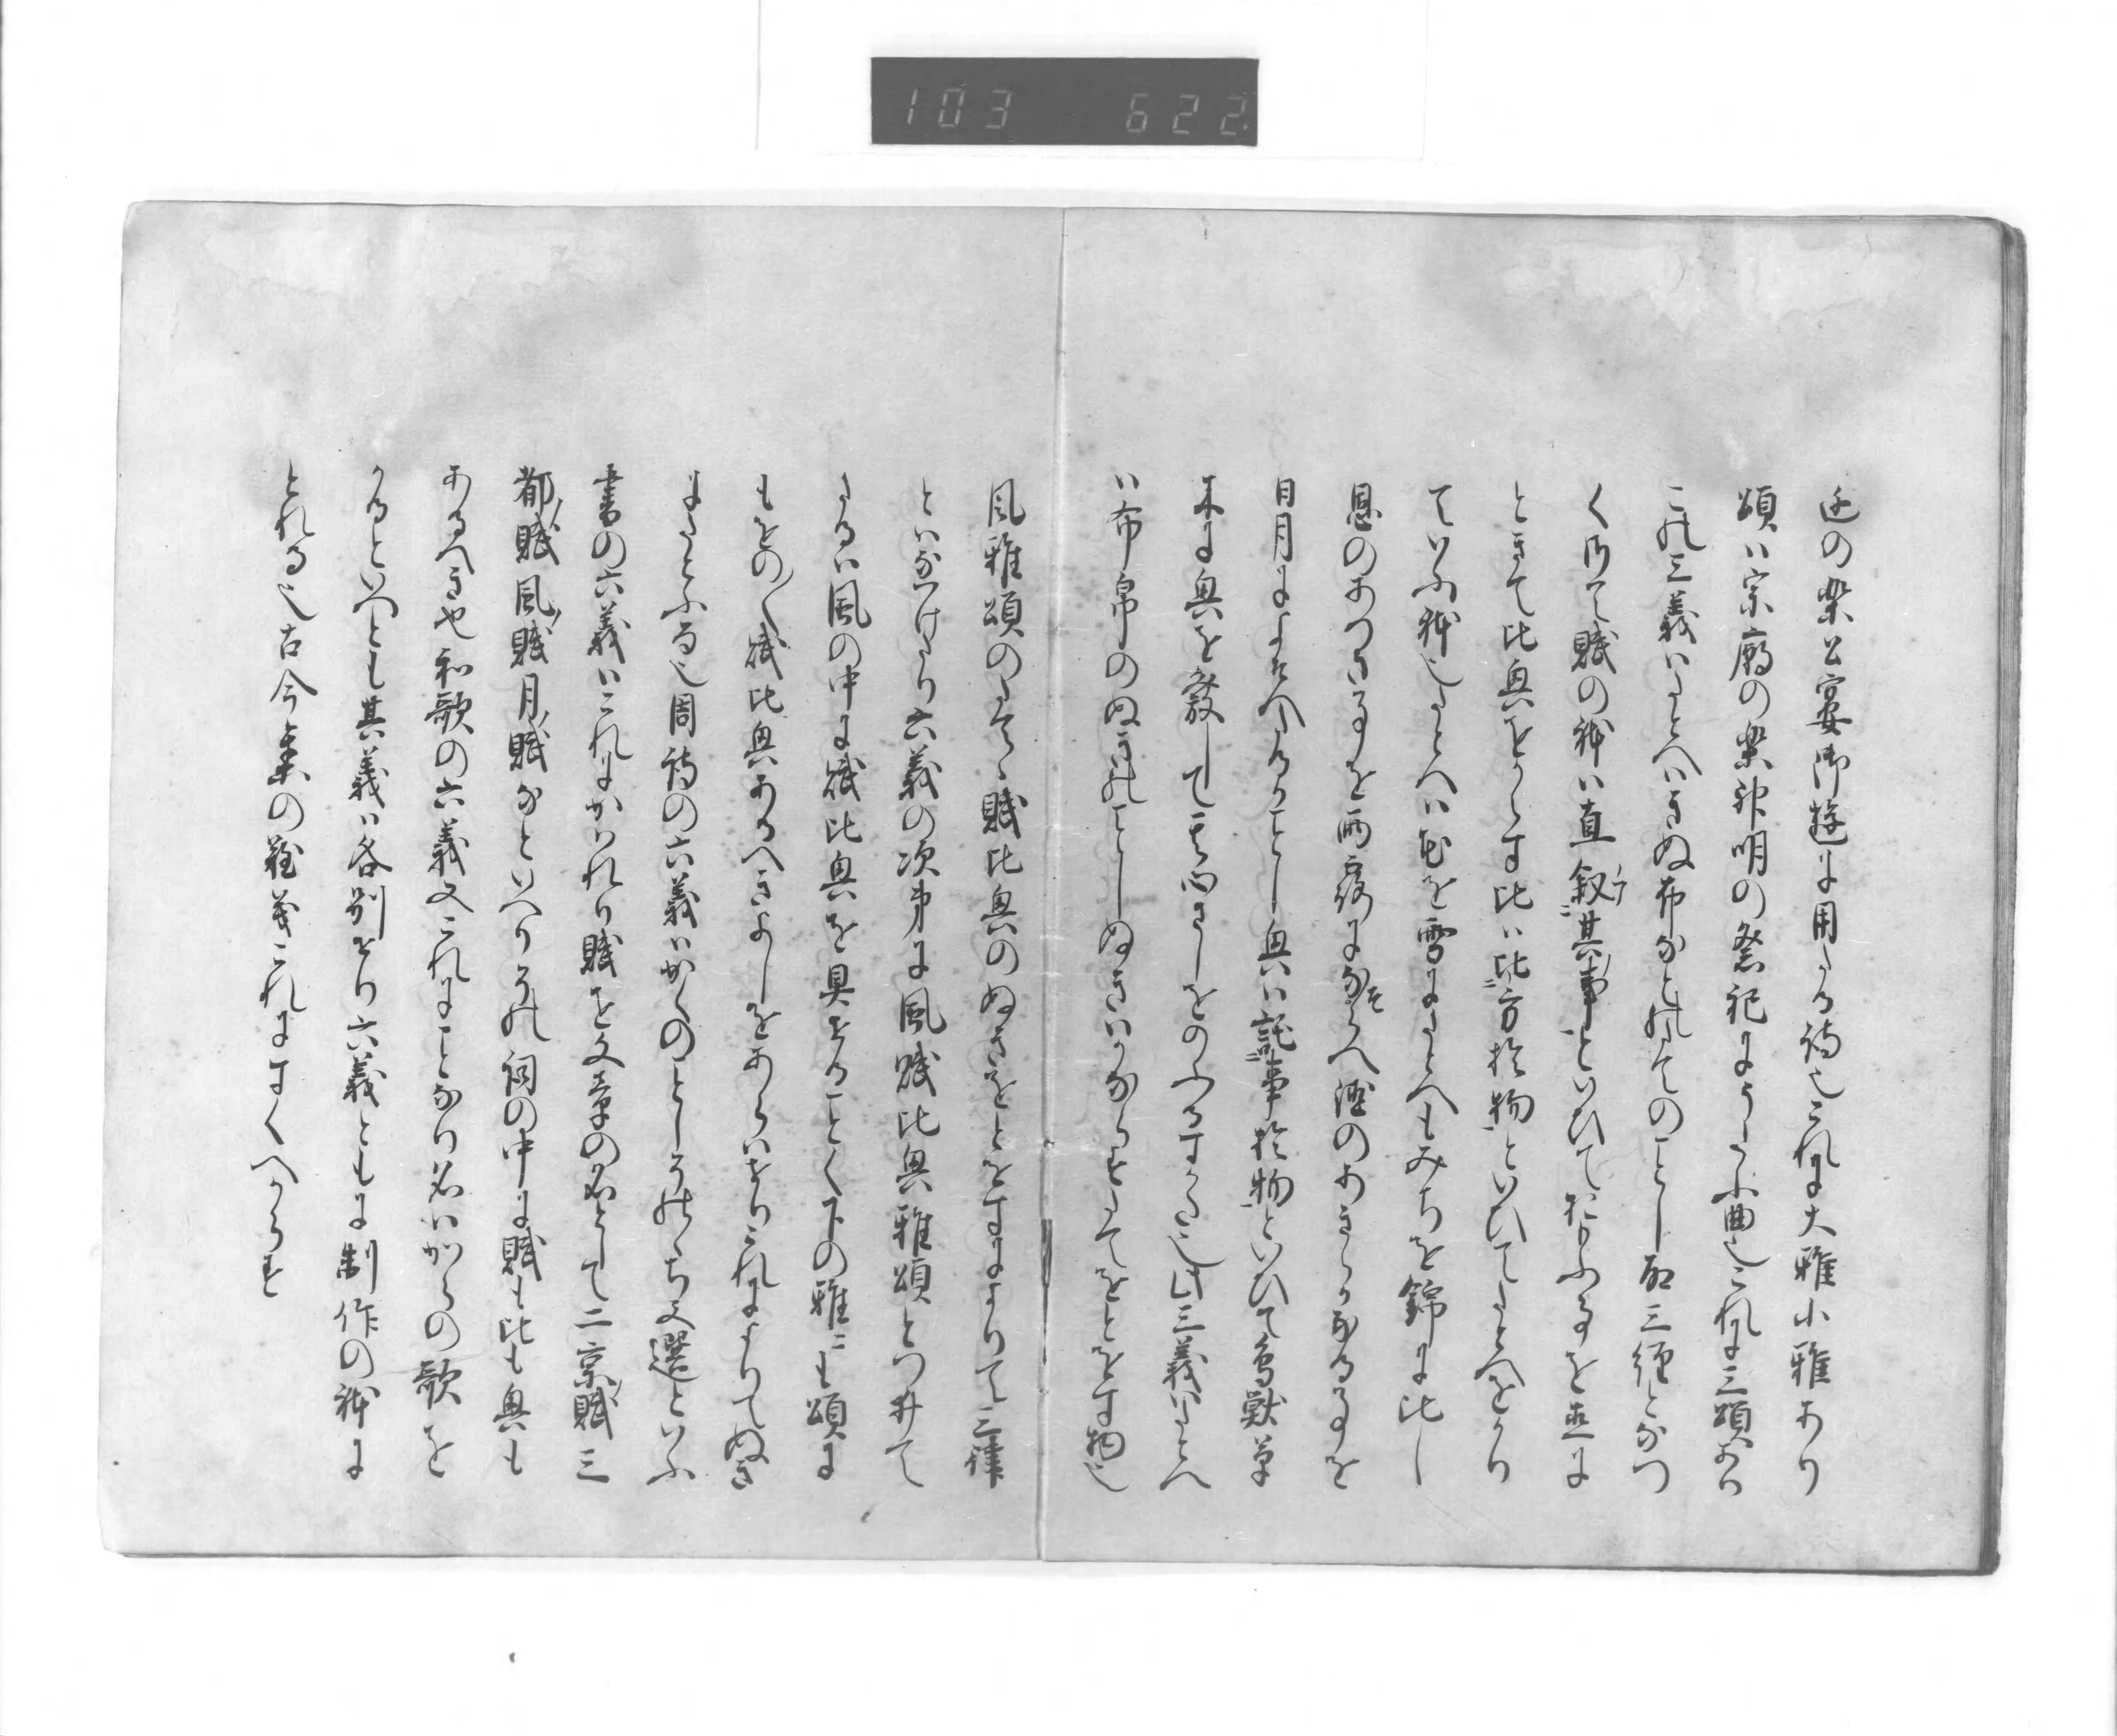 103 622
廷の楽公宴御遊に用る詩也これに大雅小雅あり
頌ハ宗廟の楽神明の祭祀にうたふ曲也これに三頌あり
これ三義ハたとへハきぬ布なとのたてのことし
て賦の躰ハ直叙其事といひて
ときて比興をからす比ハ比方於物といひてたとへをかり
ていふ躰也たとへハ花を雪にたとへもみちを錦に比し
恩のあつき事を雨露になそらへ徳のあきらかなる事を
日月によそへたることし興ハ託事於物といひて鳥獣草
木に興を発して其心さしをのふるすかた也此三義ハたとへ
ハ布帛のぬきのことしぬきハかならすたてをとをす物也
風雅頌のたて賦比興のぬきをとをすによりて三緯
といひなつけたり六義の次第に風賦比興雅頌とつゝけて
たるハ風の中に賦比興を具せることく下の雅にも頌に
もをの〱賦比興あるへきよしをあらハせりこれによりてぬき
にたとふる也周詩の六義ハかくのことしそのゝち文選といふ
書の六義ハこれにかはれり賦を文章の名として二京賦三
都賦風賦月賦なといへりその詞の中に賦も比も興も
あるへき也和歌の六義又これにことなり名ハからの歌を
かるといへとも其義ハ各別なり六義ともに制作の躰に
とれる也古今集の難義これにすくへからす